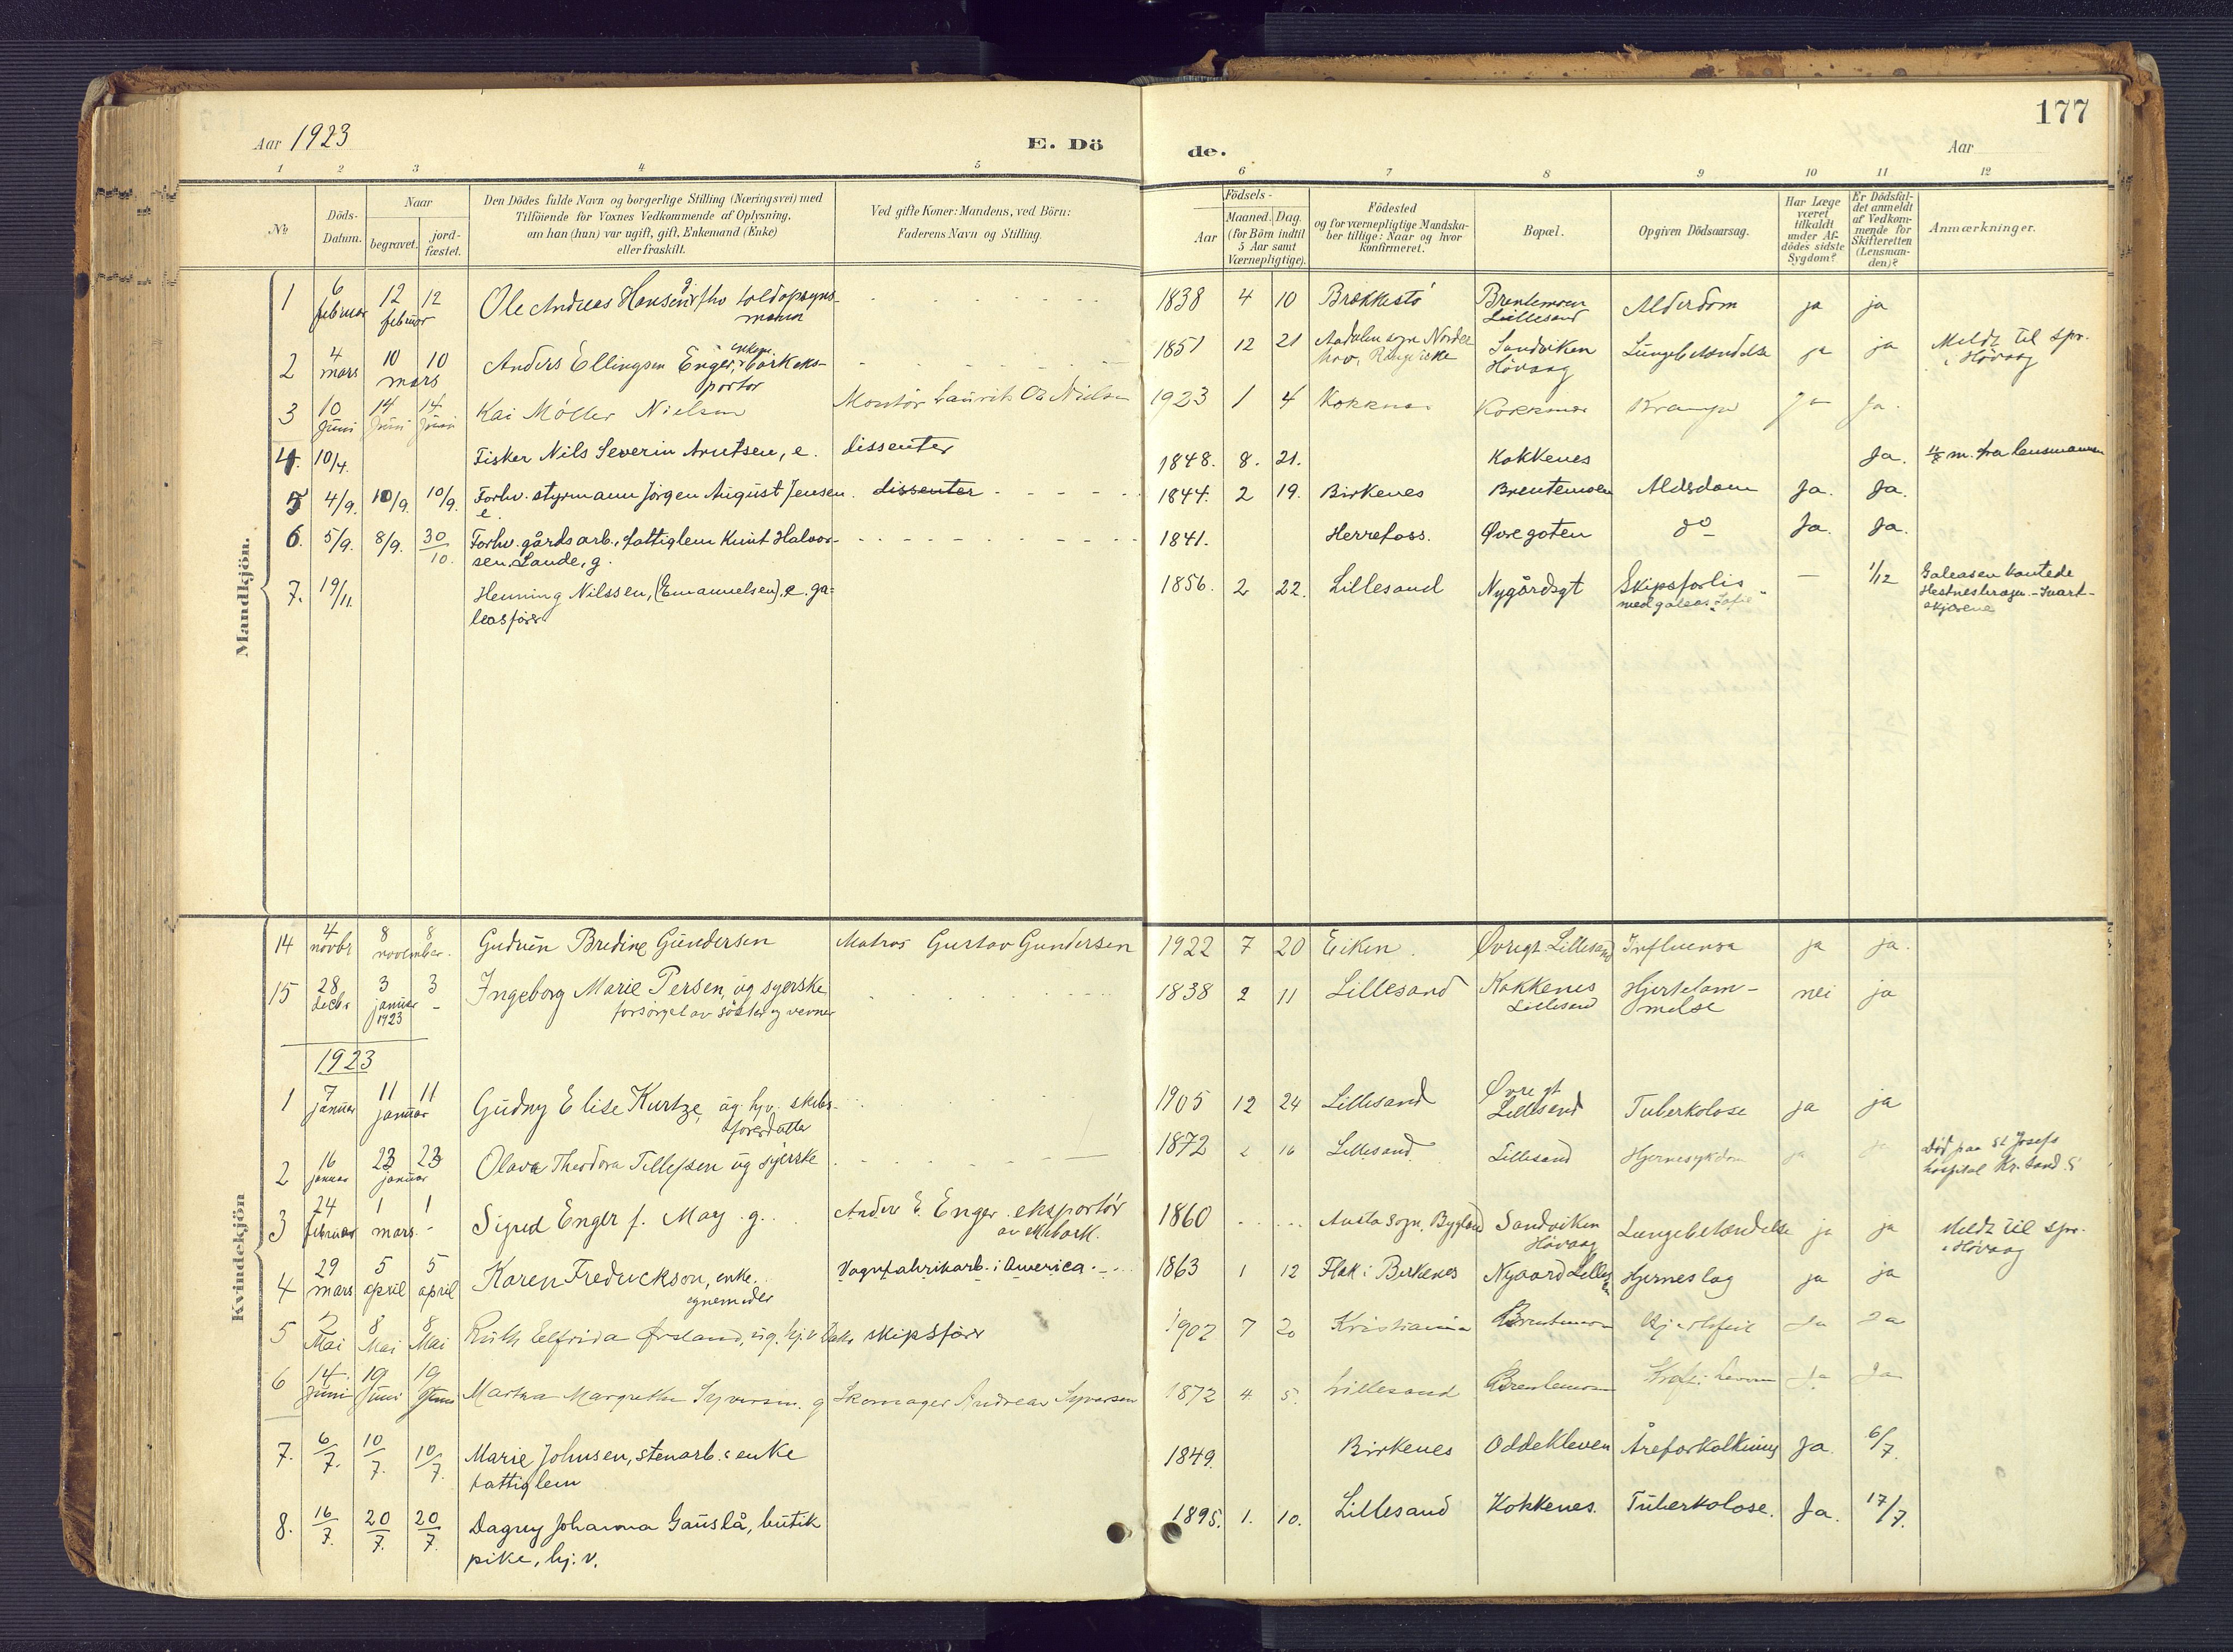 177
Aar 1923
E. Dö
de.
Aar
1 2 3 4 5 6 7 8 9 10 11 12
No
Döds-Datum.
Naar
begravet.
jord-fæstet.
Den Dödes fulde Navn og borgerlige Stilling (Næringsvei) med
Tilföiende for Voxnes Vedkommende af Oplysning,
om han (hun) var ugift, gift, Enkemand (Enke)
eller fraskilt.
Ved gifte Koner: Mandens, ved Börn:
Faderens Navn og Stilling.
Födsels-
Aar
Maaned. Dag.
(for Börn indtil
5 Aar samt
Værnepligtige).
Födested
og for værnepligtige Mandska-
ber tillige: Naar og hvor
konfirmeret.
Bopæl.
Opgiven Dödsaarsag.
Har Læge
været
tilkaldt
under Af-
dödes sidste
Sygdom?
Er Dödsfal-
det anmeldt
af Vedkom-
mende for
Skifteretten
(Lensman-
den)?
Anmærkninger.
Mandkjön.
1 6 februar 12 12 februar Ole Andreas Hansen g. fhv toldopsyns-
mann
1838 4 10 Brækkestö Brentemoen Lillesand Alderdom ja ja
2 4 mars 10 10 mars Anders Ellingsen Enger, enkem. barkeks-
portør
1851 12 21 Aadalen sogn Norder
hov, Ringerike Sandviken Hövaag Lungebetændelse ja ja Meldt til spr.
i Hövaag
3 10 Juni 14 Juni 14 Juni Kai Möller Nielsen Montör Laurits Nielsen 1923 1 4 Kokkenes Kokkenes Krampe Ja Ja.
4. 10/4. Fisker Nils Severin Arntsen, e. dissenter 1848. 8. 21. Kokkenes Ja. m. fra lensmannen
5 4/9. 10/9. 10/9. Forhv. styrmann Jörgen August Jensen. dissenter
e.
1844. 2 19. Birkenes Brentemoen Aldsdom Ja. Ja.
6. 5/9. 8/9. 30/10. Forhv. gårdsarb., fattiglem Knut Halvor-
sen Lande, g.
1841. Herrefoss. Övregaten do Ja. Ja.
7. 19/11. Henning Nilssen, (Emanuelsen), e. ga-
leasförer
1856. 2 22. Lillesand Nygårdsgt Skipsforlis
med galeas "Sofie" — 1/12 Galeasen kantede
-Svart-
skjærene
Kvindekjön
14 4 novbr 8 8 november. Gudrun Bredine Gundersen Matros Gustav Gundersen 1922 7 20 Eiken. Övregt Lillesand Influensa ja ja.
15 28 decbr 3 januar 1923 3 - Ingeborg Marie Persen, ug syerske
forsörget av söster og venner
1838 2 11 Lillesand Kokkenes Lillesand Hjertelam-
melse nei ja
1923
1 7 januar 11 11 januar Gudny Elise Kurtze, ug. hjv. skibs-
förerdatter
1905 12 24 Lillesand Övregt Lillesand Tuberkolose ja ja
2 16 januar 23 23 januar Olava Theodora Tellefsen ug syerske 1872 2 16 Lillesand. Lillesand Hjernesykdom ja ja Död paa St Josefs
hospital Kr. sand S
3 24 februar 1 1 mars - Sigrid Enger f. Moy g. Anders E. Enger eksportör
av ekebark.
1860 Austa sogn, Bygland Sandviken Hövaag Lungebetændelse ja ja Meldt til spr.
i Hövaag
4 29 mars 5 april 5 april Karen Fredrickson, enke.
egnemidler
Vognfabrikarb. i America. 1863 1 12 Flak i Birkenes Nygaard Lillesand Hjerneslag ja ja
5 2 Mai 8 Mai 8 Mai Ruth Elfrida Örsland, ug. hj.v Datr skipsförer 1902 7 20 Kristiania Brentemoen Hjertefeil Ja Ja
6 14 Juni 19 Juni 19 Juni Martha Margrethe Syversen. g Skomager Andreas Syversen 1872 4 5. Lillesand Brentemoen Kræft i leveren Ja Ja
7. 6/7. 10/7. 10/7. Marie Johnsen, stenarb.s enke
fattiglem
1849. Birkenes Oddekleven Åreforkalkning Ja. 6/7.
8. 16/7. 20/7. 20/7. Dagny Johanna Gauslå, butik
pike, hj.v.
1895. 1. 10. Lillesand Kokkenes. Tuberkolose. Ja. 17/7.